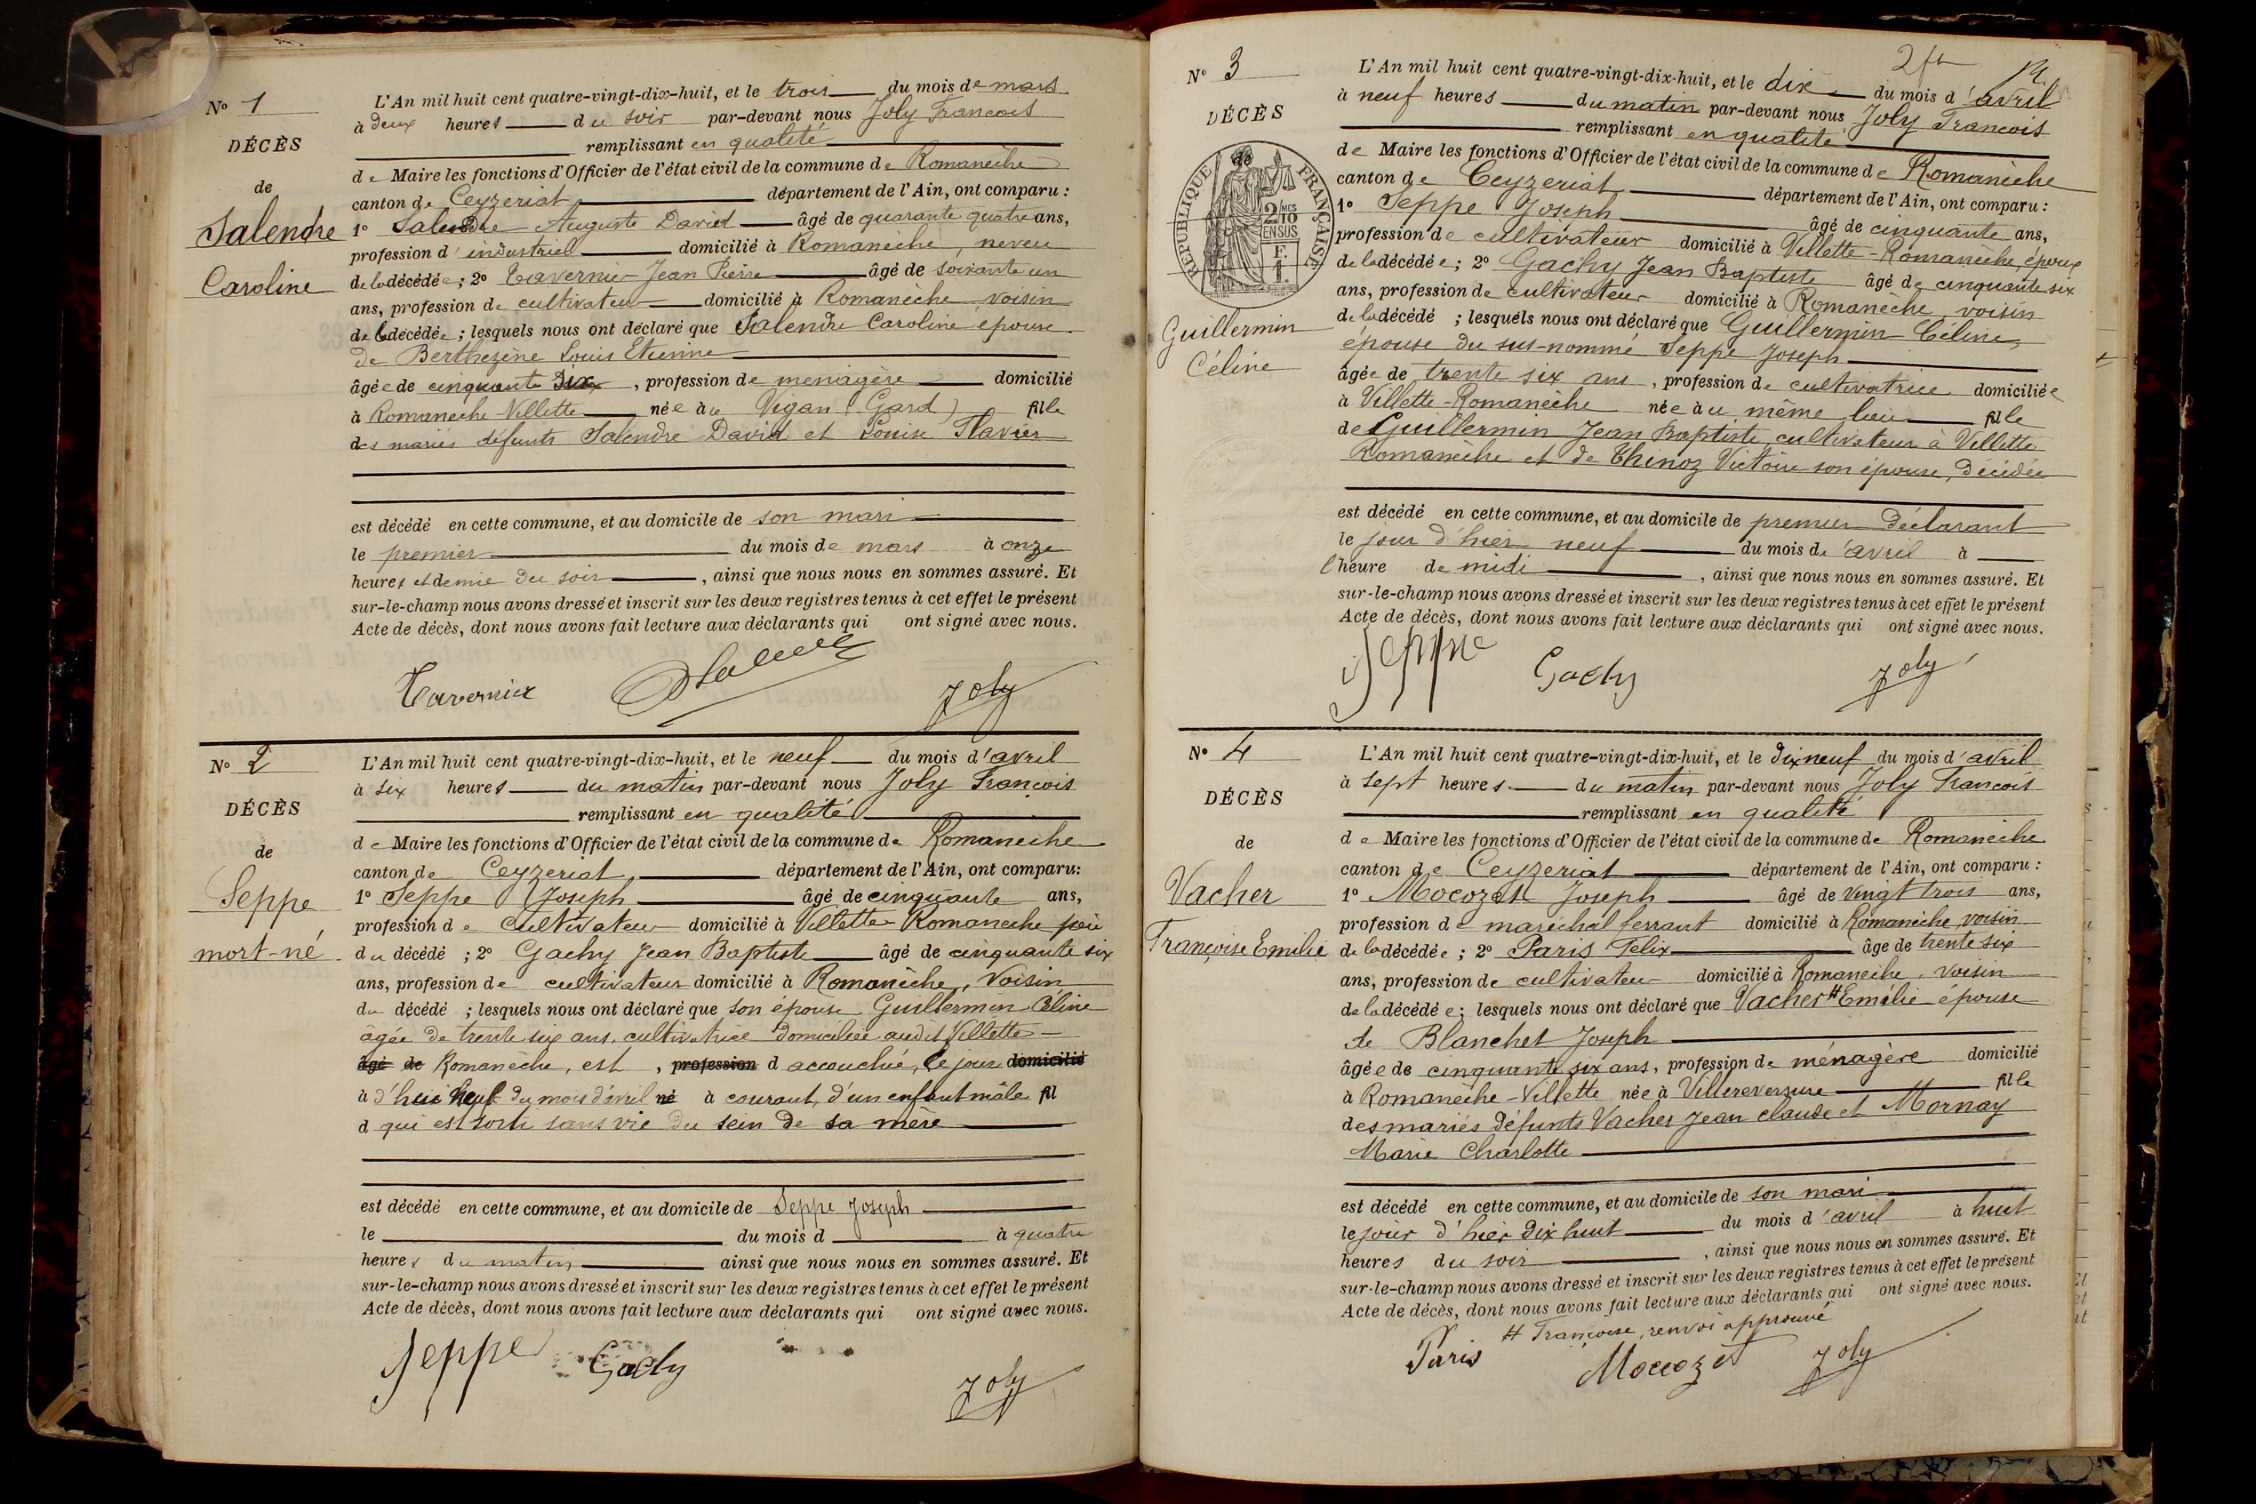 N° 1
DÉCÈS
de
Salendre
Caroline
L'An mil huit cent quatre-vingt-dix-huit, et le trois du mois de mars
à deux heures du soir par-devant nous Joly François
remplissant en qualité
de Maire les fonctions d'Officier de l'état civil de la commune de Romanèche
canton de Ceyzeriat département de l'Ain, ont comparu :
1° Salendre Auguste David âgé de quarante quatre ans,
profession d'industriel domicilié à Romanèche, neveu
de la décédée ; 2° Tavernier Jean Pierre âgé de soixante un
ans, profession de cultivateur domicilié à Romanèche voisin
de la décédée ; lesquels nous ont déclaré que Salendre Caroline épouse
de Berthezène Louis Etienne
âgée de cinquante six, profession de menagère domicilié
à Romanèche-Villette née au Vigan (Gard) fille
des mariés défunts Salendre David et Louise Flavier
est décédé en cette commune, et au domicile de son mari
le premier du mois de mars à onze
heures et demie du soir, ainsi que nous nous en sommes assuré. Et
sur-le-champ nous avons dressé et inscrit sur les deux registres tenus à cet effet le présent
Acte de décès, dont nous avons fait lecture aux déclarants qui ont signé avec nous.
Tavernier Joly
N° 2
DÉCÈS
de
Seppe
mort-né
L'An mil huit cent quatre-vingt-dix-huit, et le neuf du mois d'avril
à six heures du matin par-devant nous Joly François
remplissant en qualité
de Maire les fonctions d'Officier de l'état civil de la commune de Romanèche
canton de Ceyzeriat département de l'Ain, ont comparu :
1° Seppe Joseph âgé de cinquante ans,
profession de cultivateur domicilié à Villette Romanèche père
du décédé ; 2° Gachy Jean Baptiste âgé de cinquante six
ans, profession de cultivateur domicilié à Romanèche, voisin
du décédé ; lesquels nous ont déclaré que son épouse Guillermin Céline
âgée de trente six ans, cultivatrice domiciliée audit Villette
âgé de Romanèche, est, profession d accouchée, le jour domicilié
à d'hier huit du mois d'avril né à courant, d'un enfant mâle fil
d qui est sorti sans vie du sein de sa mère
est décédé en cette commune, et au domicile de Seppe Joseph
le du mois d à quatre
heures du matin ainsi que nous nous en sommes assuré. Et
sur-le-champ nous avons dressé et inscrit sur les deux registres tenus à cet effet le présent
Acte de décès, dont nous avons fait lecture aux déclarants qui ont signé avec nous.
Seppe Gachy Joly
2 fo
N° 3
DÉCÈS
de
RÉPUBLIQUE FRANÇAISE
2 MES
10
EN SUS
F.
1.
Guillermin
Céline
L'An mil huit cent quatre-vingt-dix-huit, et le dix du mois d'avril
à neuf heures du matin par-devant nous Joly François
remplissant en qualité
de Maire les fonctions d'Officier de l'état civil de la commune de Romanèche
canton de Ceyzeriat département de l'Ain, ont comparu :
1° Seppe Joseph âgé de cinquante ans,
profession de cultivateur domicilié à Villette-Romanèche, époux
de la décédée ; 2° Gachy Jean Baptiste âgé de cinquante six
ans, profession de cultivateur domicilié à Romanèche, voisin
de la décédé ; lesquels nous ont déclaré que Guillermin Céline,
épouse du sus-nommé Seppe Joseph
âgée de trente six ans, profession de cultivatrice domiciliée
à Villette-Romanèche née au même lieu fille
de Guillermin Jean Baptiste, cultivateur à Villette
Romanèche et de Thinoz Victoire son épouse, décédée
est décédé en cette commune, et au domicile de premier déclarant
le jour d'hier neuf du mois d'avril à
l'heure de midi, ainsi que nous nous en sommes assuré. Et
sur-le-champ nous avons dressé et inscrit sur les deux registres tenus à cet effet le présent
Acte de décès, dont nous avons fait lecture aux déclarants qui ont signé avec nous.
Seppe Gachy Joly
N° 4
DÉCÈS
de
Vacher
Françoise Emilie
L'An mil huit cent quatre-vingt-dix-huit, et le dix neuf du mois d'avril
à sept heures du matin par-devant nous Joly François
remplissant en qualité
de Maire les fonctions d'Officier de l'état civil de la commune de Romanèche
canton de Ceyzeriat département de l'Ain, ont comparu :
1° Mocozet Joseph âgé de vingt trois ans,
profession de maréchal ferrant domicilié à Romanèche, voisin
de la décédée ; 2° Paris Felix âgé de trente six
ans, profession de cultivateur domicilié à Romanèche, voisin
de la décédée ; lesquels nous ont déclaré que Vacher # Emélie épouse
de Blanchet Joseph
âgée de cinquante six ans, profession de ménagère domicilié
à Romanèche-Villette née à Villereversure fille
des mariés défunts Vacher Jean Claude et Mornay
Marie Charlotte
est décédé en cette commune, et au domicile de son mari
le jour d'hier dix huit du mois d'avril à huit
heures du soir, ainsi que nous nous en sommes assuré. Et
sur-le-champ nous avons dressé et inscrit sur les deux registres tenus à cet effet le présent
Acte de décès, dont nous avons fait lecture aux déclarants qui ont signé avec nous.
# Françoise, renvoi approuvé
Paris Mocozet Joly